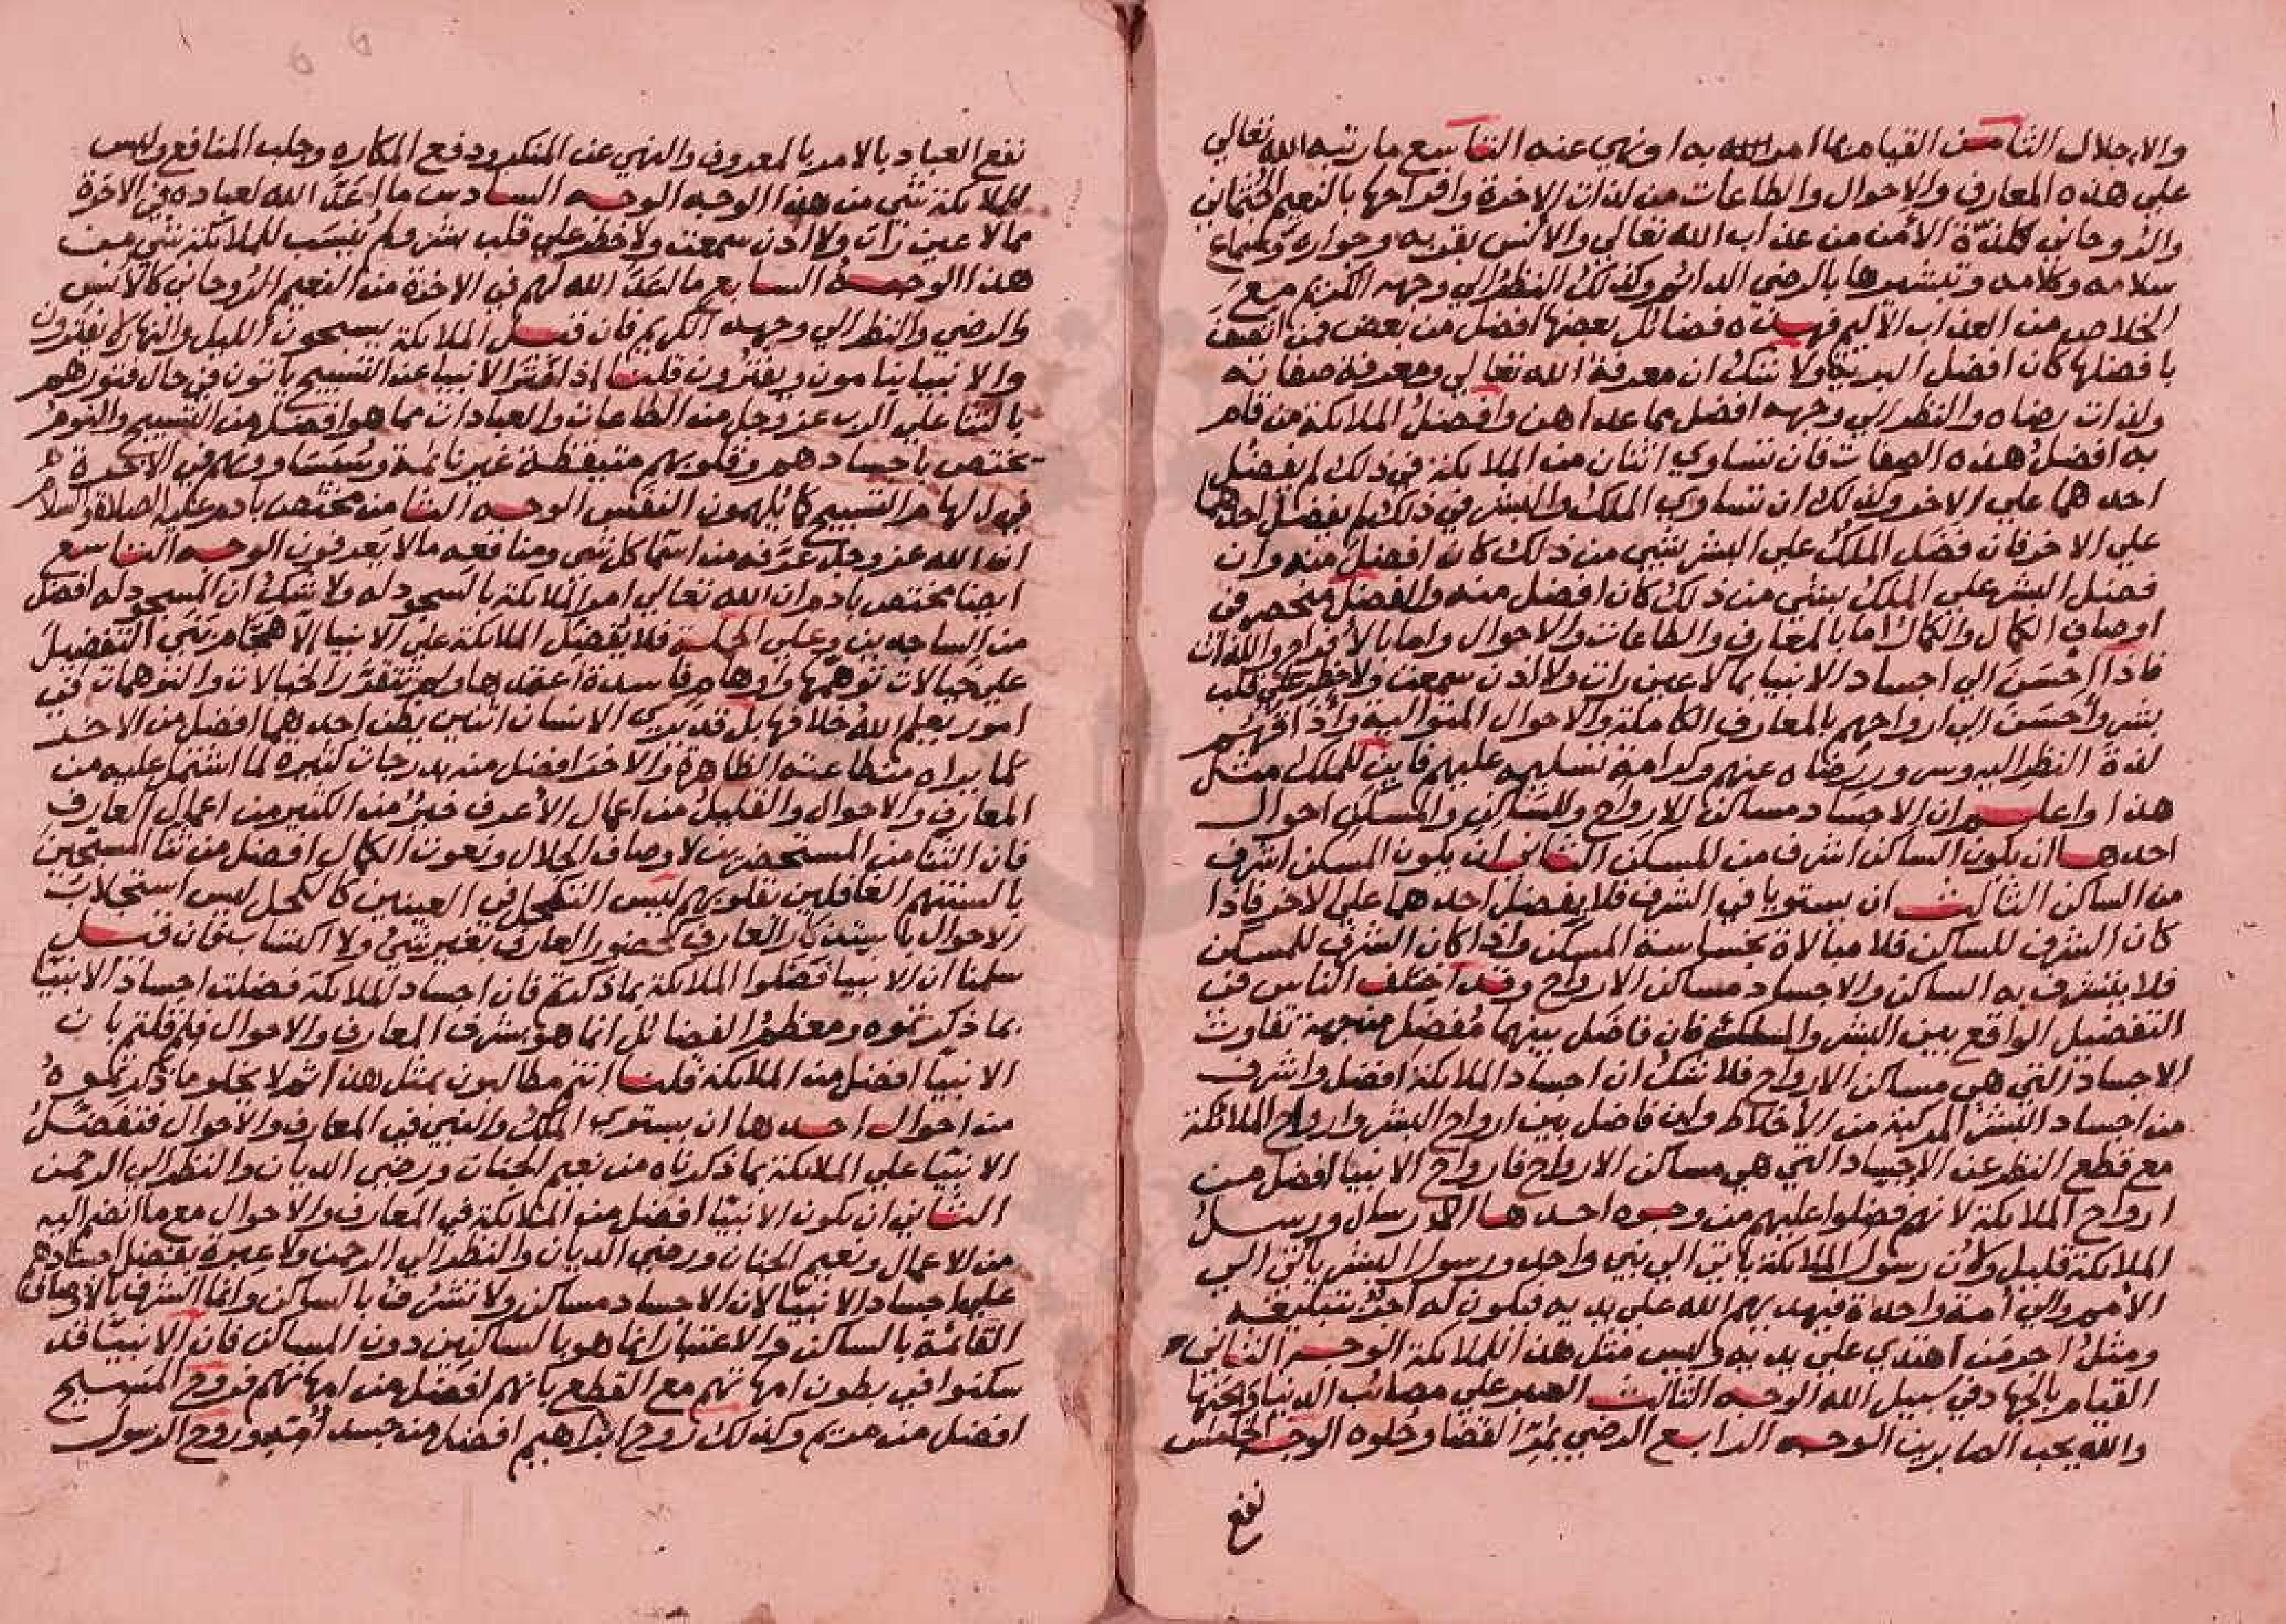 والاجلال الثامن القيام بما امر الله به او نهي عنه التاسع ما رتبه الله تعالي
علي هذه المعارف والاحوال والطاعات من لذات الاخرة وافراحها بالنعيم الجثماني
والروحاني كلذة الأمن من عذاب الله تعالي والأنس بقربه وجواره وسماع
سلامه وكلامه وتبشيرها بالرضي الدائم وكذلك النظر الي وجهه الكريم مع
الخلاص من العذاب الأليم فهذه فضائل بعضها افضل من بعض فمن اتصف
بافضلها كان افضل البرية ولا شك ان معرفة الله تعالي ومعرفة صفاته
ولذات رضاه والنظر الي وجهه افضل مما عداهن وافضل الملائكة من قام
به افضل هذه الصفات فان تساوي اثنان من الملائكة في ذلك لم يفضل
احدهما علي الاخر وكذلك ان تساوي الملك والبشر في ذلك لم يفضل احدهما
علي الاخر فان فضل الملك علي البشر بشي من ذلك كان افضل منه وان
فضل البشر علي الملك بشي من ذلك كان افضل منه والفضل منحصر في
اوصاف الكمال والكمال اما بالمعارف والطاعات والاحوال واما بالأفراح واللذات
فاذا احسن الي اجساد الانبيا بما لا عين رات ولا اذن سمعت ولا خطر علي قلب
بشر واحسن الي ارواحهم بالمعارف الكاملة والاحوال المتوالية واذاقهم
لذة النظر اليه وسرور رضاه عنهم وكرامة تسليمه عليهم فاين للملك مثل
هذا واعلم ان الاجساد مساكن للارواح وللساكن والمسكن احوال
احدها ان يكون الساكن اشرف من المسكن الثاني ان يكون المسكن اشرف
من الساكن الثالث ان يستويا في الشرف فلا يفضل احدهما علي الاخر فاذا
كان الشرف للساكن فلا مبالاة بخساسة المسكن واذا كان الشرف للمسكن
فلا يتشرف به الساكن والاجساد مساكن الارواح وقد اختلف الناس في
التفضيل الواقع بين البشر والملك فان فاضل بينهما مفضل من جهة تفاوت
الاجساد التي هي مساكن الارواح فلا شك ان اجساد الملائكة افضل واشرف
من اجساد البشر المركبة من الأخلاط وان فاضل بين ارواح البشر وارواح الملائكة
مع قطع النظر عن الاجساد التي هي مساكن الارواح فارواح الانبيا افضل من
ارواح الملائكة لانهم فضلوا عليهم من وجوه احدها الارسال ورسل
الملائكة قليل ولان رسول الملائكة ياتي الي نبي واحد ورسول البشر ياتي الي
الأمم والي أمة واحدة فيهديهم الله علي يديه فيكون له اجر تبليغه
ومثل اجر من اهتدي علي يديه وليس مثل هذا للملائكة الوجه الثاني
القيام بالجهاد في سبيل الله الوجه الثالث الصبر علي مصائب الدنيا ومحنها
والله يحب الصابرين الوجه الرابع الرضي بمر القضا وحلوه الوجه الخامس
نفع
نفع العباد بالامر بالمعروف والنهي عن المنكر ودفع المكاره وجلب المنافع وليس
للملائكة شي من هذا الوجه الوجه السادس ما اعد الله لعباده في الاخرة
مما لا عين رات ولا اذن سمعت ولا خطر علي قلب بشر ولم ينسب للملائكة شي من
هذا الوجه السابع ما اعد الله لهم في الاخرة من النعيم الروحاني كالأنس
والرضي والنظر الي وجهه الكريم فان قيل الملائكة يسبحون الليل والنهار لا يفترون
والانبيا ينامون ويفترون قلنا اذا فتر الانبيا عن التسبيح ياتون في حال فتورهم
بالثنا علي الرب عز وجل من الطاعات والعبادات مما هو افضل من التسبيح والنوم
يختص باجسادهم وقلوبهم متيقظة غير نائمة وسيساوونهم في الاخرة
في الهام التسبيح كما يلهمون النفس الوجه الثامن مختص بادم عليه الصلاة والسلام
ان الله عز وجل عرفه من اسما كل شي ومنافعه ما لا يعرفون الوجه التاسع
ايضا مختص بادم ان الله تعالي امر الملائكة بالسجود له ولا شك ان المسجود له افضل
من الساجدين وعلي الجملة فلا يفضل الملائكة علي الانبيا الا هجام يبني التفضيل
علي خيالات توهمها واوهام فاسدة اعتمدها ولم تتقرر الخيالات والتوهمات في
امور يعلم الله خلافها بل قد يري الانسان اثنين يظن احدهما افضل من الاخر
لما يراه من طاعته الظاهرة والاخر افضل منه بدرجات كثيرة لما اشتمل عليه من
المعارف والاحوال والقليل من اعمال الأعرف خير من الكثير من اعمال العارف
فان الثنا من المستحضرين لاوصاف الجلال ونعوت الكمال افضل من ثنا المسبحين
بالسنتهم الغافلين بقلوبهم ليس التكحل في العينين كالكحل ليس استجلاب
الاحوال باستذكار العارف كحضور العارف بغير شي ولا اكتساب فان قيل
سلمنا ان الانبيا فضلوا الملائكة بما ذكرتم فان اجساد الملائكة فضلت اجساد الانبيا
بما ذكرتموه ومعظم الفضائل انما هو بشرف المعارف والاحوال فلم قلتم بان
الانبيا افضل من الملائكة قلنا انتم مطالبون بمثل هذا ثم لا يخلو ما ذكرتموه
من احوال احدها ان يستوي الملك والنبي في المعارف والاحوال فتفضل
الانبيا علي الملائكة بما ذكرناه من نعيم الجنات ورضي الديان والنظر الي الرحمن
الثاني ان يكون الانبيا افضل من الملائكة في المعارف والاحوال مع ما انضم اليه
من الاعمال ونعيم الجنان ورضي الديان والنظر الي الرحمن ولا عبرة بفضل اجسادهم
علي اجساد الانبيا لان الاجساد مساكن ولا تشرف بالسواكن وانما الشرف بالاوصاف
القائمة بالساكن والاعتبار انما هو بالساكنين دون المساكن فان الانبيا قد
سكنوا في بطون امهاتهم مع القطع بانهم افضل من امهاتهم فروح المسيح
افضل من مريم وكذلك روح ابراهيم افضل من جسد أمه وروح الرسول